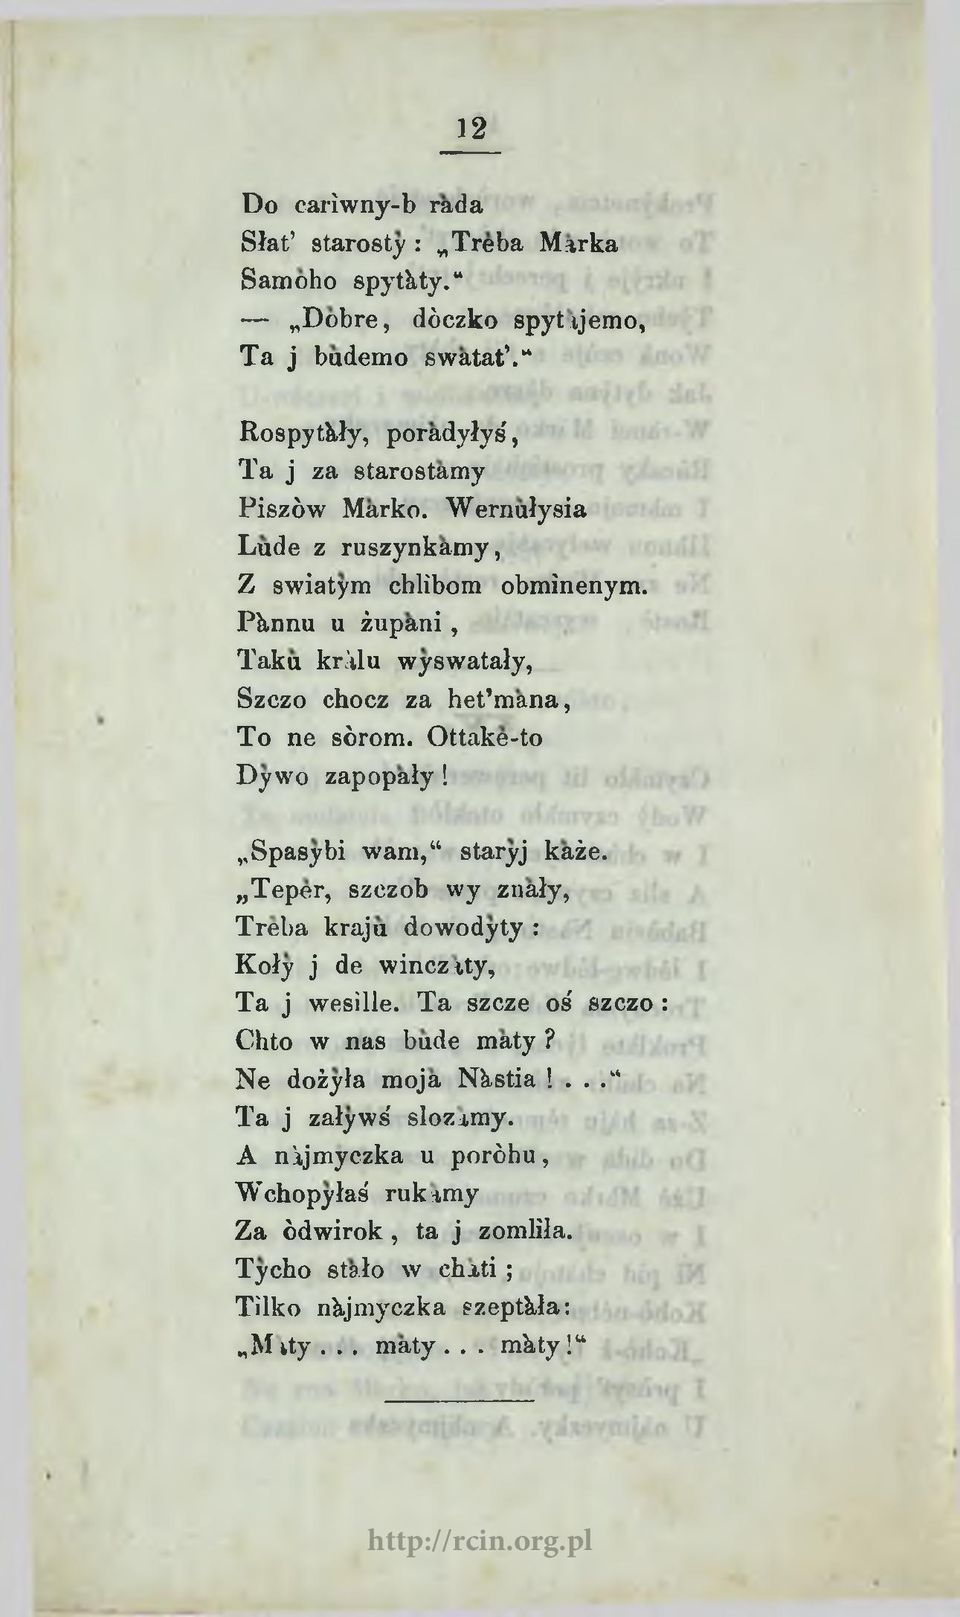 12
Do cariwny-b ràda
Słat' starostỳ : „Trèba Màrka
Samòho spytàty.“
— „Dòbre, dòczko spytàjemo,
Ta j bùdemo swàtat'.“
Rospytàły, poràdyłyś,
Ta j za starostàmy
Piszòw Màrko. Wernùłysia
Lùde z ruszynkàmy,
Z swiatỳm chlìbom obmìnenym.
Pànnu u żupàni ,
Takù kràlu wỳswatały,
Szczo chocz za het'màna,
To ne sòrom. Ottakè-to
Dỳwo zapopàły !
„Spasỳbi wam,“ starỳj kàże.
„Tepèr, szczob wy znàły,
Trèba krajù dowodỳty :
Kołỳ j de winczàty,
Ta j wesìlle. Ta szcze oś szczo :
Chto w nas bùde màty ?
Ne dożỳła mojà Nàstia ! . . .“
Ta j załỳwś slozàmy.
A nàjmyczka u poròhu,
Wchopỳłaś rukàmy
Za òdwirok , ta j zomlìła.
Tỳcho stàło w chàti ;
Tìlko nàjmyczka szeptàła:
„Màty . . . màty . . . màty !“
http://rcin.org.pl